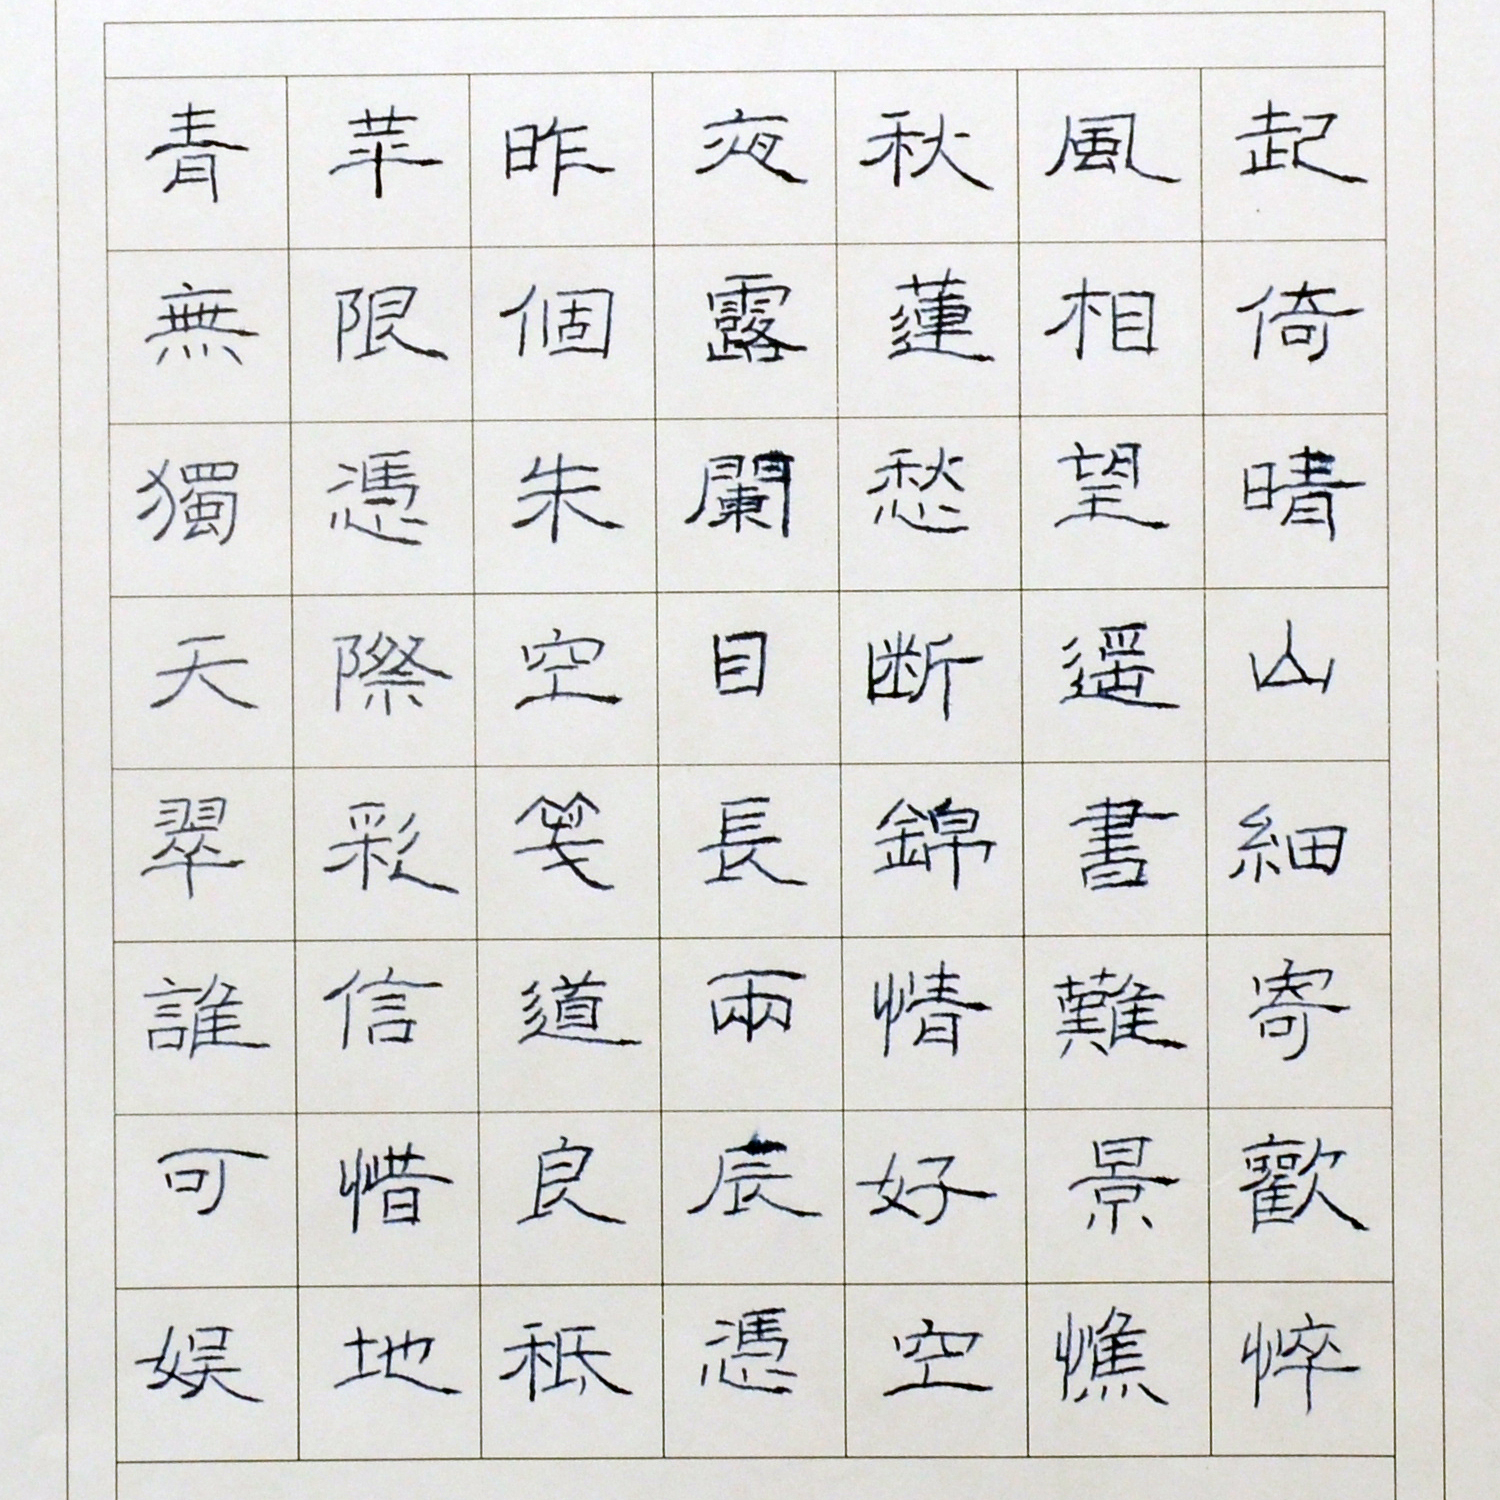 青苹昨夜秋風起
無限個露蓮相倚
獨憑朱闌愁望晴
天際空目断遥山
翠彩笺長錦書細
誰信道兩情難寄
可惜良辰好景歡
娱地秖憑空憔悴